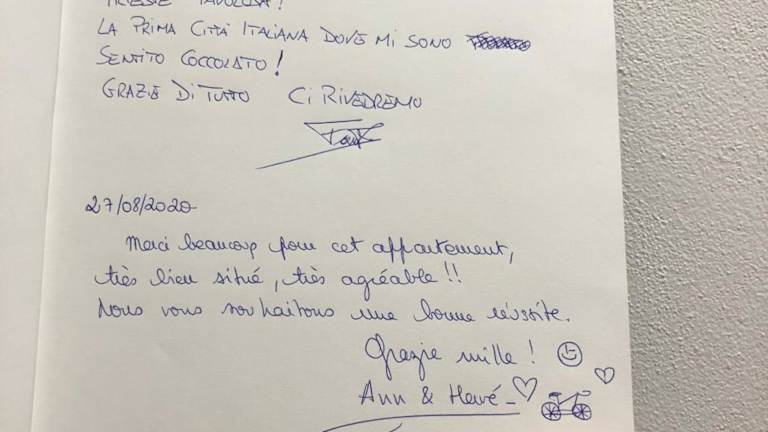 TRIESTE FAVOLOSA!
LA PRIMA CITTÀ ITALIANA DOVE MI SONO
SENTITO COCCOLATO!
GRAZIE DI TUTTO CI RIVEDREMO
27/08/2020
Merci beaucoup pour cet appartement,
très bien situé, très agréable!!
Nous vous souhaitons une bonne réussite.
Grazie mille!
Ann & Hervé